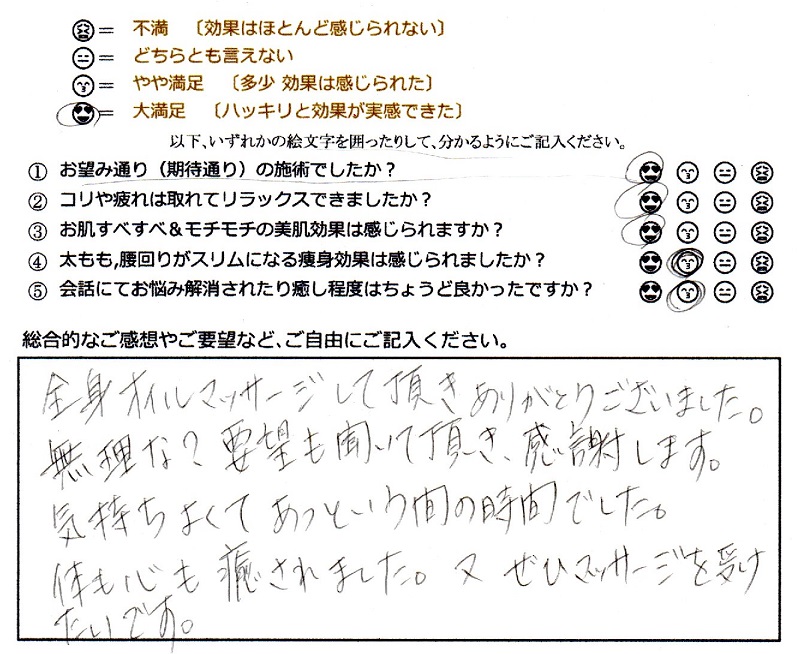 😫＝ 不満 〔効果はほとんど感じられない〕
😑＝ どちらとも言えない
😙＝ やや満足 〔多少 効果は感じられた〕
😍＝ 大満足 〔ハッキリと効果が実感できた〕
以下、いずれかの絵文字を囲ったりして、分かるようにご記入ください。
① お望み通り（期待通り）の施術でしたか？ 😍 😙 😑 😫
② コリや疲れは取れてリラックスできましたか？ 😍 😙 😑 😫
③ お肌すべすべ＆モチモチの美肌効果は感じられますか？ 😍 😙 😑 😫
④ 太もも,腰回りがスリムになる痩身効果は感じられましたか？ 😍 😙 😑 😫
⑤ 会話にてお悩み解消されたり癒し程度はちょうど良かったですか？ 😍 😙 😑 😫
総合的なご感想やご要望など、ご自由にご記入ください。
全身オイルマッサージして頂きありがとうございました。
無理な？要望も聞いて頂き、感謝します。
気持ちよくてあっという間の時間でした。
体も心も癒されました。又ぜひマッサージを受け
たいです。